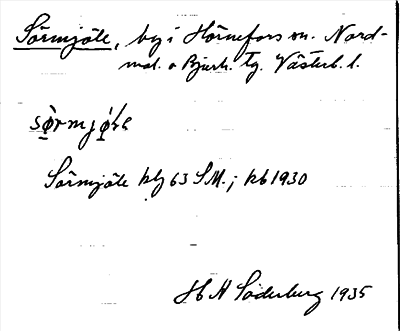 Sörmjöle, by i Hörnefors sn. Nord-
mal. o Bjurh. tg. Västerb. l.
sörmjöle
Sörmjöle blz 63 S.M.; kb 1930
H H Söderberg 1935